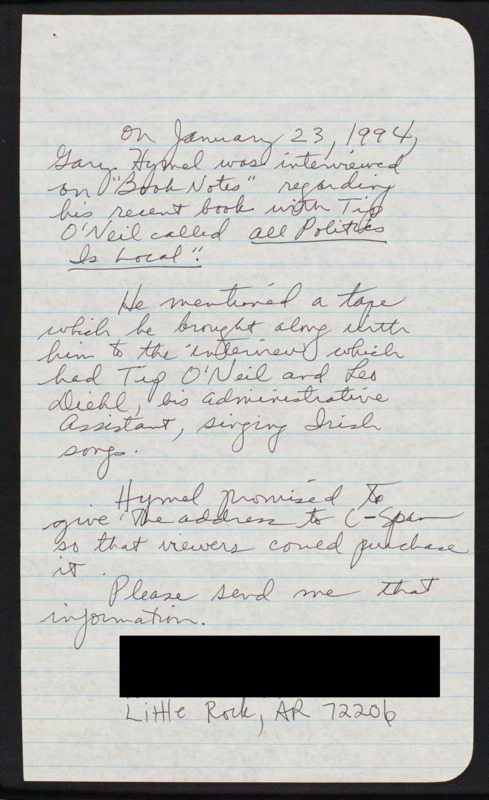 On January 23, 1994,
Gary Hymel was interviewed
on "Book Notes" regarding
his recent book with Tip
O'Neil called all Politics
Is Local".
He mentioned a tape
which he brought along with
him to the interview which
had Tip O'Neil and Leo
Diehl, his administrative
Assistant, singing Irish
songs.
Hymel promised to
give the address to C-Span
so that viewers could purchase
it.
Please send me that
information.
Little Rock, AR 72206